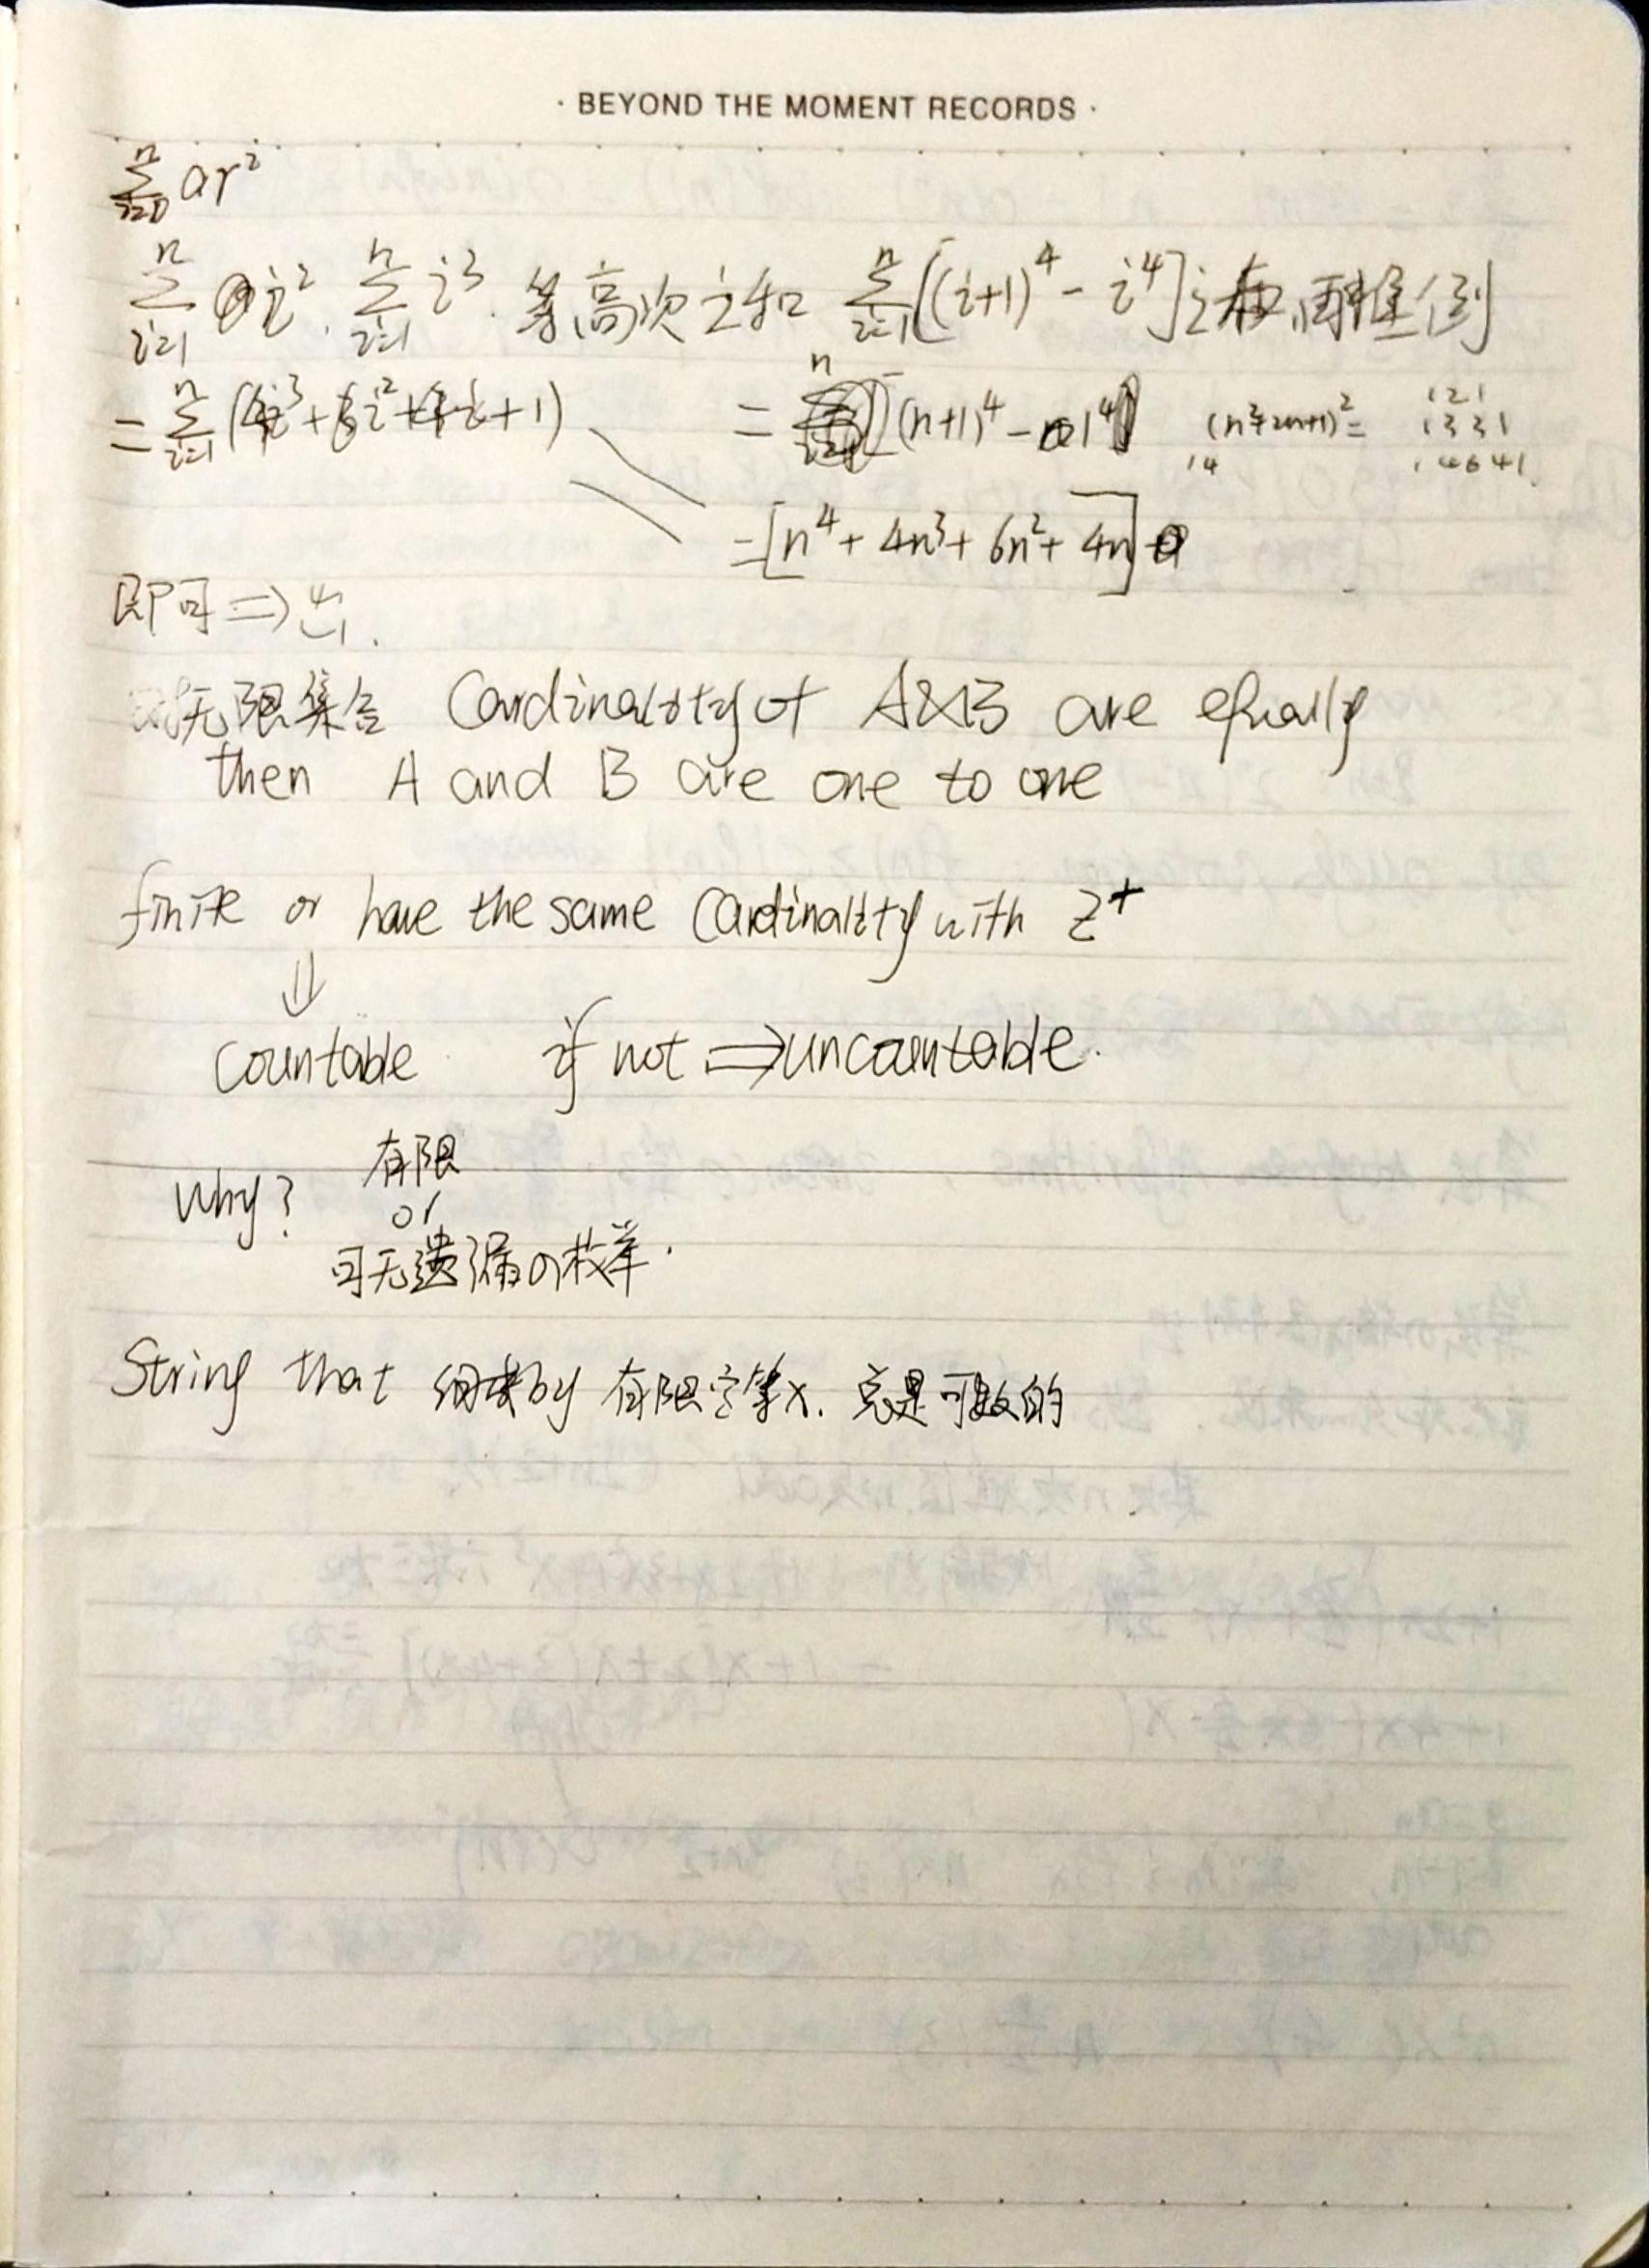 · BEYOND THE MOMENT RECORDS ·
∑_{i=0}^{n} ar²
∑_{i=1}^{n} i², ∑_{i=1}^{n} i³, 等高次之和 ∑_{i=1}^{n}[(i+1)⁴ - i⁴]
= ∑_{i=1}^{n} (4i³+6i²+4i+1) = (n+1)⁴ - 1⁴ (n²+2n+1)² = 1 2 1
1 3 3 1
1 4 1 4 6 4 1
= [n⁴ + 4n³ + 6n² + 4n]
即可 =>
对无限集合 Cardinality of A&B are equally
then A and B are one to one
finite or have the same Cardinality with Z⁺
⇓
Countable if not ⟹ uncountable.
Why? 有限
or
可无遗漏の枚举.
String that 组成 by 有限字符 x. 总是可数的